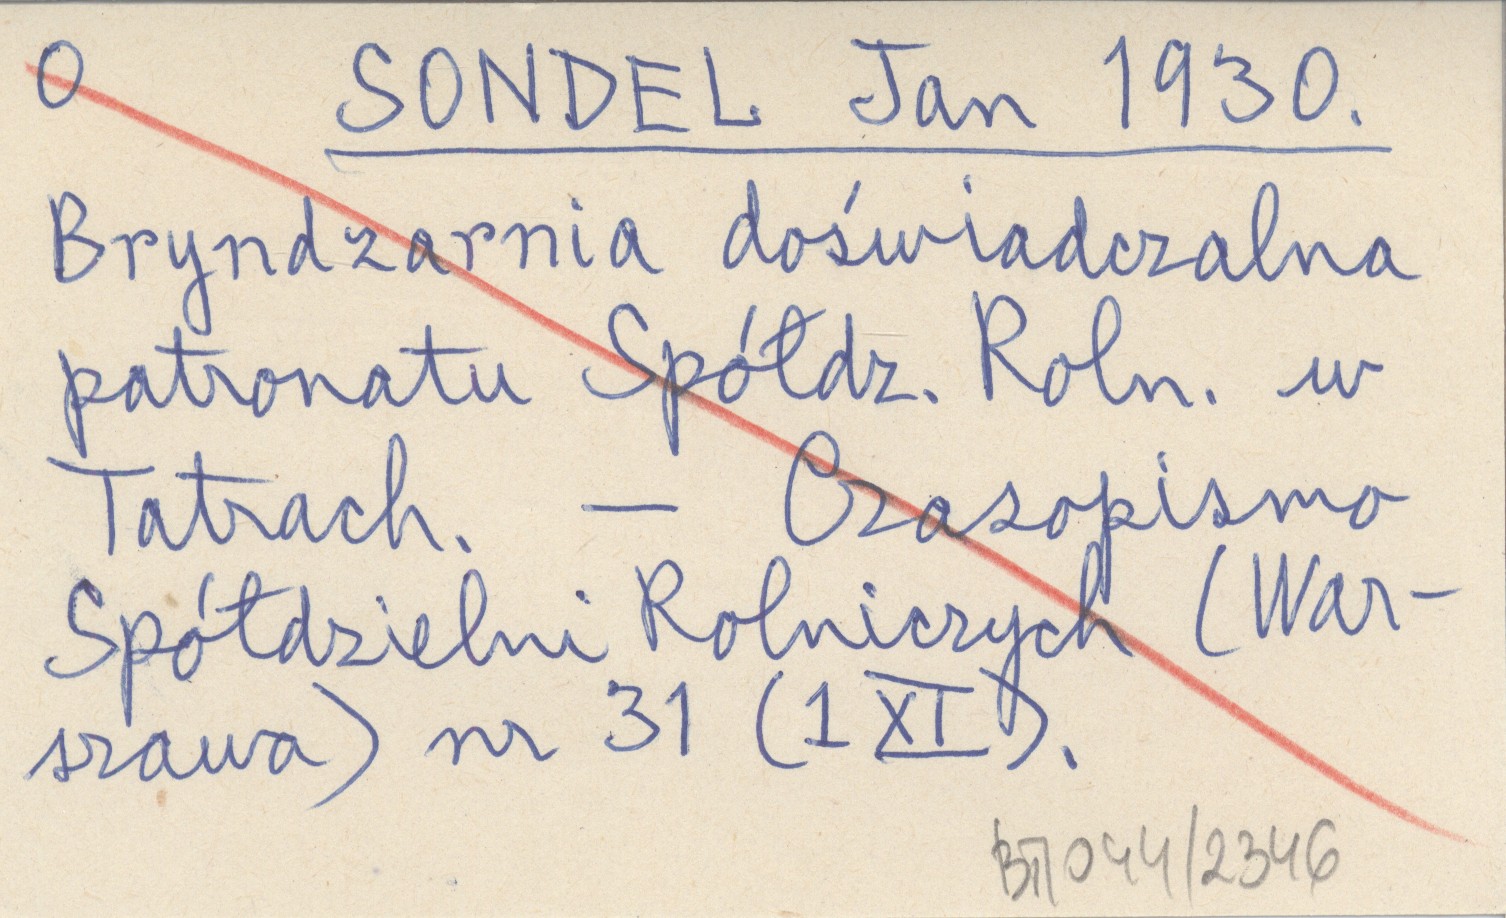 O SONDEL Jan 1930.
Bryndzarnia doświadczalna
patronatu Spółdz. Roln. w
Tatrach. — Czasopismo
Spółdzielni Rolniczych (War-
szawa) nr 31 (1 XI).
BTI/044/2346